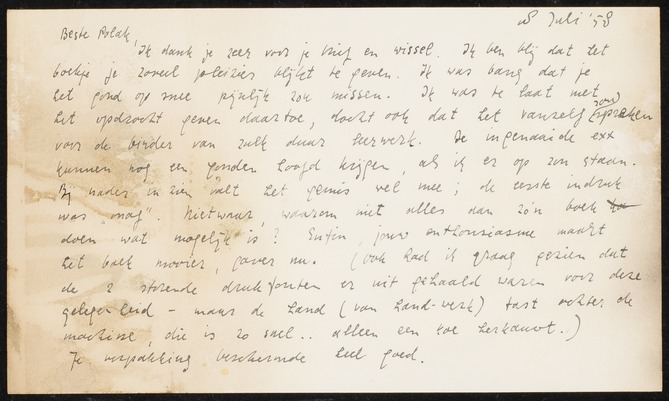 8 Juli '58
Beste Polak,
Ik dank je zeer voor je brief en wissel. Ik ben blij dat het
boekje je zoveel pleizier blijkt te geven. Ik was bang dat je
het goud op snee pijnlijk zou missen. Ik was te laat met
het opdracht geven daartoe, dacht ook dat het vanzelf zou spreken
voor de binder van zulk duur leerwerk. De ingenaaide exx
kunnen nog een gouden hoofd krijgen, als ik er op zou staan.
Bij nader in zien valt het gemis wel mee; de eerste indruk
was "onaf". Nietwaar, waarom niet alles aan zo'n boek
doen wat mogelijk is? Enfin, jouw enthousiasme maakt
het boek mooier, gaver nu. (Ook had ik graag gezien dat
de 2 storende drukfouten er uit gehaald waren voor deze
gelegenheid – maar de hand (van hand-werk) tast achter de
machine, die is zo snel.. alleen een koe herkauwt..)
Je verpakking beschermde heel goed.